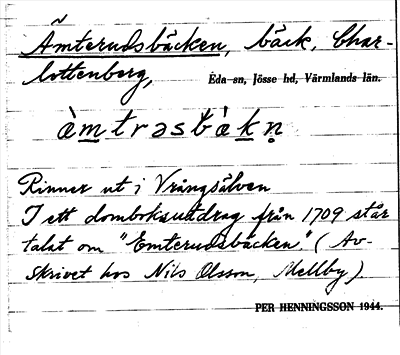 Ämterudsbäcken, bäck, Char-
lottenberg, Eda sn, Jösse hd, Värmlands län.
à̀mtrəsbὰkn̥
Rinner ut i Vrångsälven
I ett domboksutdrag från 1709 står
talat om "Emterudsbäcken" (Av-
skrivet hos Nils Olsson, Mellby)
PER HENNINGSSON 1944.